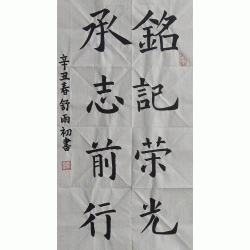 銘記荣光
承志前行
辛丑春舒雨初書